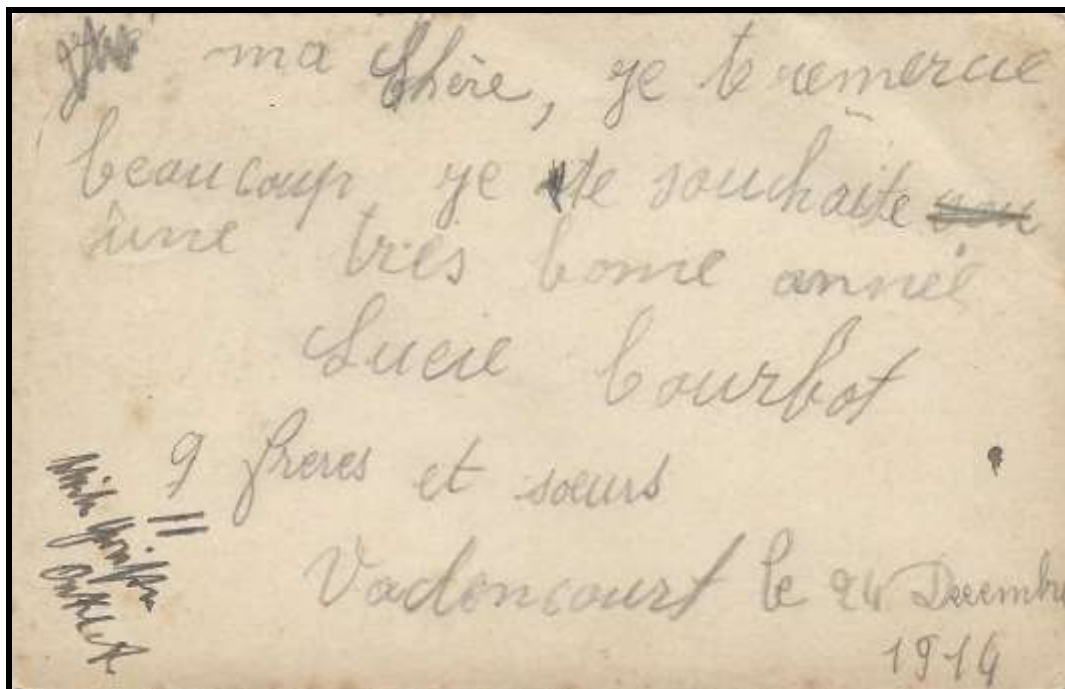 ma Chère, je te remercie
beaucoup je te souhaite
une très bonne année
Lucie bourbot
9 freres et sœurs
11
Vadencourt le 24 Decembre
1914